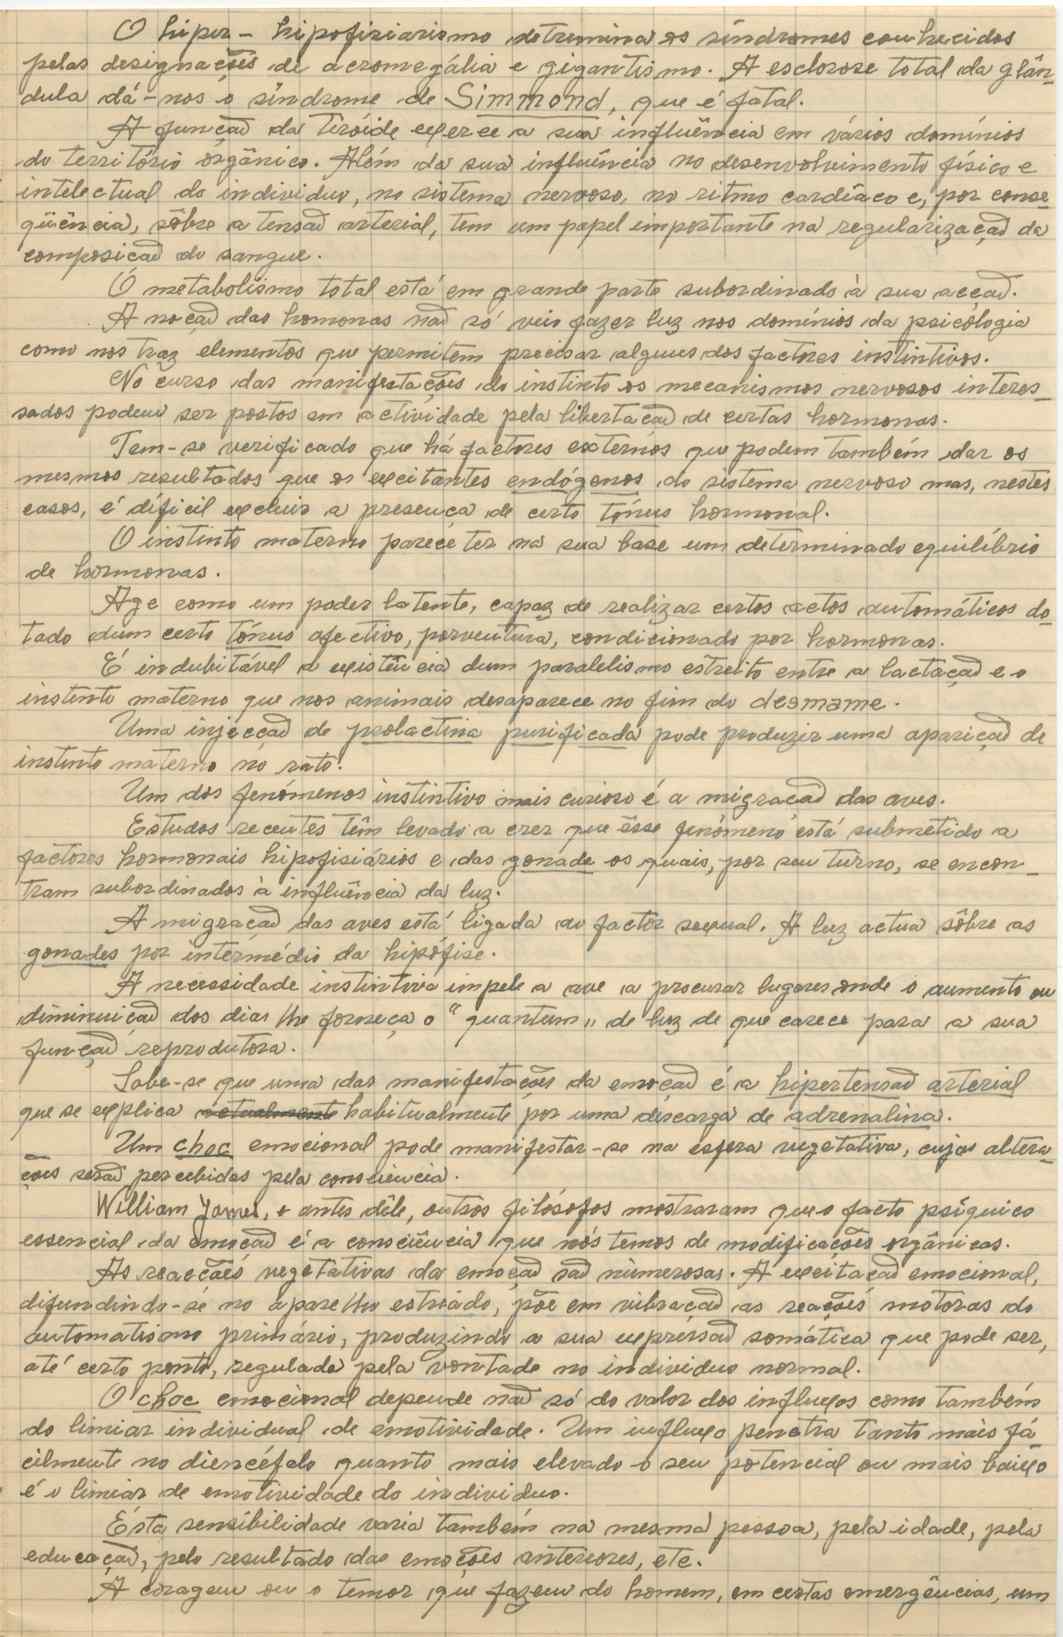 O hiper-hipofisiarismo determina os síndromes conhecidos
pelas designações de acromegália e gigantismo. A esclerose total da glân-
dula dá-nos o síndrome de Simmond, que é fatal.
A função da tiróide exerce a sua influência em vários domínios
do território orgânico. Além da sua influência no desenvolvimento físico e
intelectual do indivíduo, no sistema nervoso, no ritmo cardíaco e, por conse-
qüência, sôbre a tensão arterial, tem um papel importante na regularização da
composição do sangue.
O metabolismo total está em grande parte subordinado à sua acção.
A noção das homonas não só veio fazer luz nos domínios da psicologia
como nos traz elementos que permitem precisar alguns dos factores instintivos.
No curso das manifestações do instinto os mecanismos nervosos interes-
sados podem ser postos em actividade pela libertação de certas hormonas.
Tem-se verificado que há factores externos que podem também dar os
mesmos resultados que os excitantes endógenos do sistema nervoso mas, nestes
casos, é difícil excluir a presença de certo tónus hormonal.
O instinto materno parece ter na sua base um determinado equilíbrio
de hormonas.
Age como um poder latente, capaz de realizar certos actos automáticos do-
tado dum certo tónus afectivo, porventura, condicionado por hormonas.
É indubitável a existência dum paralelismo estreito entre a lactação e o
instinto materno que nos animais desaparece no fim do desmame.
Uma injecção de prolactina purificada pode produzir uma aparição de
instinto materno no rato.
Um dos fenómenos instintivo mais curioso é a migração das aves.
Estudos recentes têm levado a crer que êsse fenómeno está submetido a
factores hormonais hipofisiários e das gonade os quais, por seu turno, se encon-
tram subordinados à influência da luz.
A migração das aves está ligada ao factor sexual. A luz actua sôbre as
gonades por intermédio da hipófise.
A necessidade instintiva impele a ave a procurar lugares onde o aumento ou
diminuição dos dias lhe forneça o "quantum" de luz de que carece para a sua
função reprodutora.
Sabe-se que uma das manifestações da emoção é a hipertensão arterial
que se explica actualmente habitualmente por uma descarga de adrenalina.
Um choc emocional pode manifestar-se na esfera vegetativa, cujas altera-
ções serão percebidas pela consciência.
William James, e antes dêle, outros filósofos mostraram que o facto psíquico
essencial da emoção é a consciência que nós temos de modificações orgânicas.
As reacções vegetativas da emoção são numerosas. A excitação emocional,
difundindo-se no aparelho estriado, põe em vibração as reações motoras do
automatismo primário, produzindo a sua expressão somática que pode ser,
até certo ponto, regulada pela vontade no indivíduo normal.
O choc emocional depende não só do valor dos influxos como também
do limiar individual de emotividade. Um influxo penetra tanto mais fá
cilmente no diencéfalo quanto mais elevado o seu potencial ou mais baixo
é o limiar de emotividade do indivíduo.
Esta sensibilidade varia também na mesma pessoa, pela idade, pela
educação, pelo resultado das emoções anteriores, etc.
A coragem ou o temor que fazem do homem, em certas emergências, um